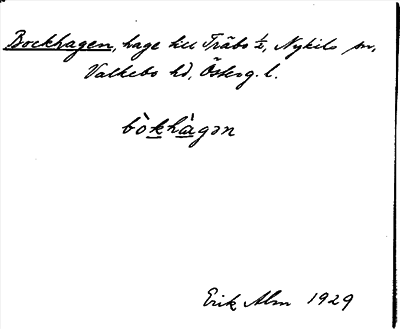 Bockhagen, hage till Träbo ½, Nykils sn,
Valkebo hd, Österg. l.
bòkhàgən
Erik Alm 1929